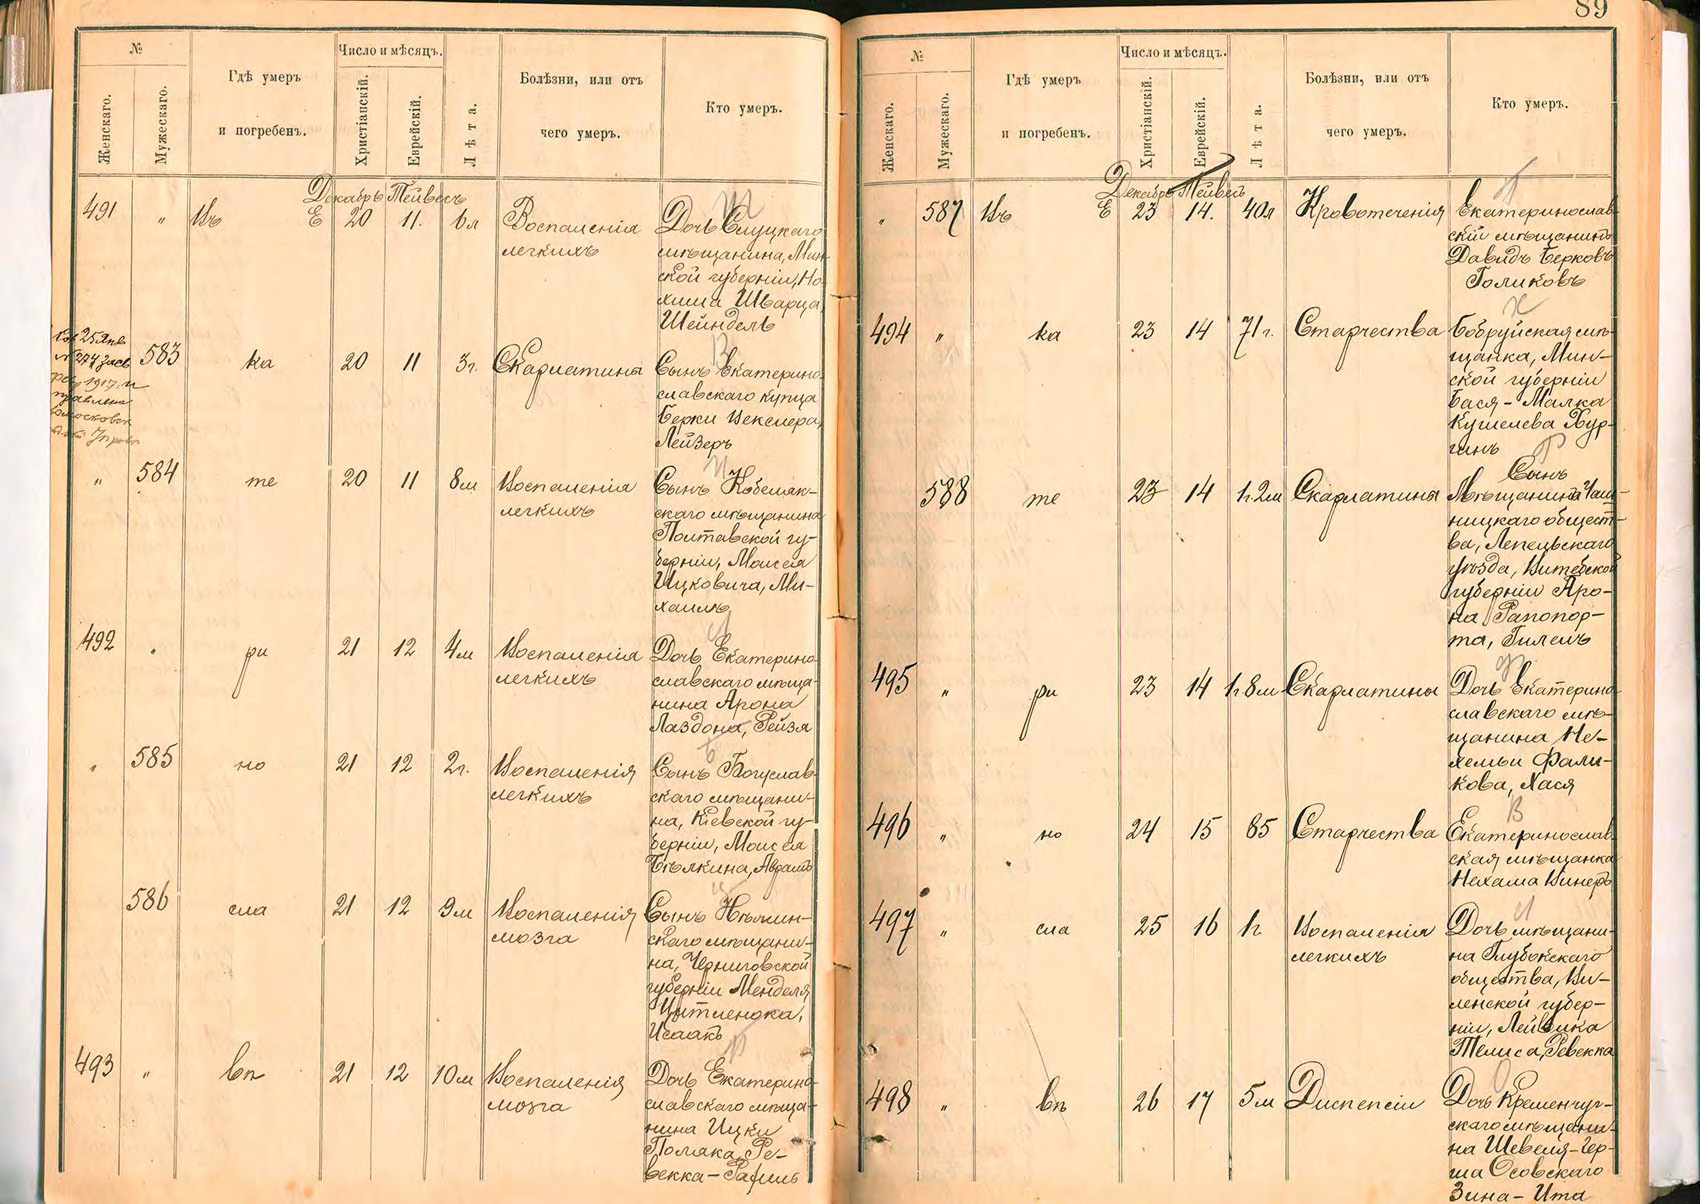 89
№
Женскаго.
Мужескаго.
Гдѣ умеръ
и погребенъ.
Число и мѣсяцъ.
Христіанскій.
Еврейскій.
Лѣта.
Болѣзни, или отъ
чего умеръ.
Кто умеръ.
Декабрь Тейвесъ
491 " Въ Е 20 11. 6л Воспаленія
легкихъ
Ш
Дочь Слуцкаго
мѣщанина, Мин-
ской губерніи, Но-
хима Шварца,
Шейндель
583 ка 20 11 3г. Скарлатины
В
Сынъ Екатерино-
славскаго купца
Берки Векслера,
Лейзеръ
" 584 те 20 11 8м Воспаленія
легкихъ
Сынъ Кобеляк-
скаго мѣщанина
Полтавской гу-
берніи, Моисея
Ицковича, Ми-
хаилъ
492 " ри 21 12 4м Воспаленія
легкихъ
Дочь Екатерино-
славскаго мѣща-
нина Арона
Лаздона, Рейзя
" 585 но 21 12 2г. Воспаленія
легкихъ
Б
Сынъ Богуслав-
скаго мѣщани-
на, Кіевской гу-
берніи, Моисея
Бѣлкина, Авраамъ
586 сла 21 12 9м Воспаленія
мозга
Ц
Сынъ Нѣжин-
скаго мѣщани-
на, Черниговской
губерніи Менделя
Цитленока,
Исаакъ
493 " вп 21 12 10м Воспаленія
мозга
П
Дочь Екатерино-
славскаго мѣща-
нина Ицки
Поляка, Ре-
векка-Рахиль
№
Женскаго.
Мужескаго.
Гдѣ умеръ
и погребенъ.
Число и мѣсяцъ.
Христіанскій.
Еврейскій.
Лѣта.
Болѣзни, или отъ
чего умеръ.
Кто умеръ.
Декабрь Тейвесъ
" 587 Въ Е 23 14. 40л Кровотеченія
Екатеринослав-
скій мѣщанинъ
Давидъ Берковъ
Голиковъ
494 " ка 23 14 71г. Старчества
Х
Бобруйская мѣ-
щанка, Мин-
ской губерніи
Бася-Малка
Кушелева Хур-
гинъ
588 те 23 14 1г.2м Скарлатины
Р
Сынъ
Мѣщанина Чаш-
ницкаго общест-
ва, Лепельскаго
уѣзда, Витебской
губерніи Аро-
на Рапопор-
та, Гилель
495 " ри 23 14 1г8м Скарлатины
Ф
Дочь Екатерино-
славскаго мѣ-
щанина Не-
хемьи Фали-
кова, Хася
496 " но 24 15 85 Старчества
В
Екатеринослав-
ская мѣщанка
Нехама Винеръ
497 " сла 25 16 1г. Воспаленія
легкихъ
Дочь мѣщани-
на Глубокскаго
общества, Ви-
ленской губер-
ніи, Лейвика
Телиса, Ревекка
498 " вп 26 17 5м Диспепсіи
О
Дочь Кременчуг-
скаго мѣщани-
на Шевеля-Гер-
ша Осовскаго
Зина-Ита